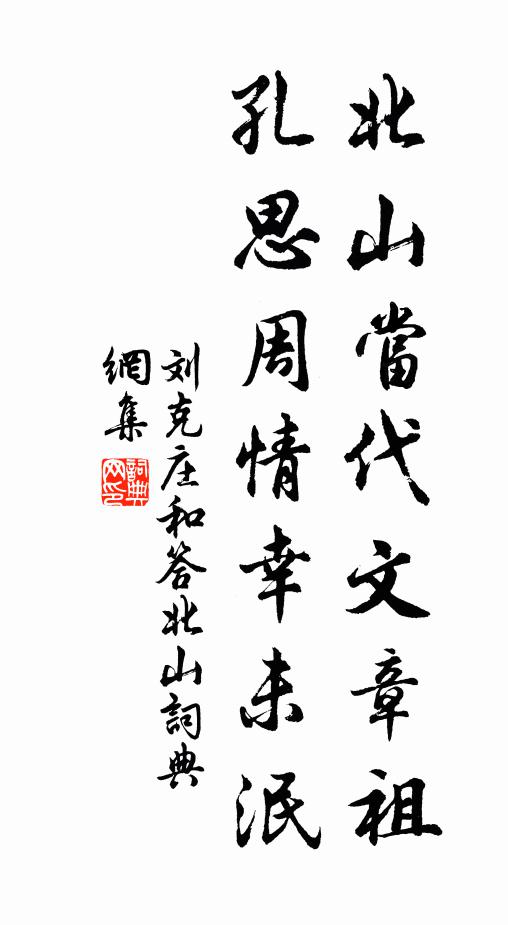 北山當代文章祖
孔思周情幸未泯
刘克庄和答北山詞典
網集
詞典
网印